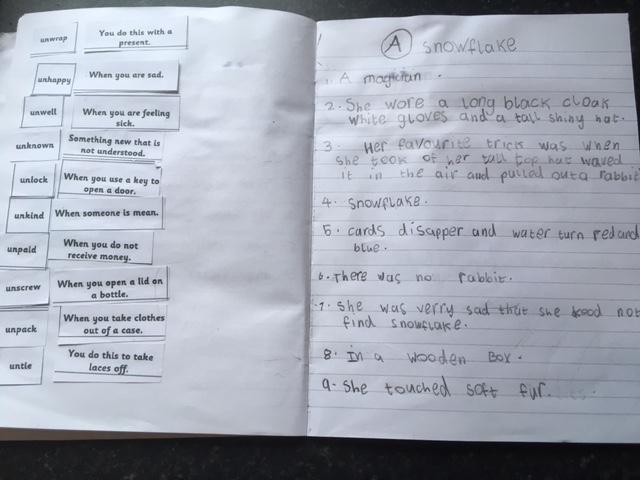 unwrap
You do this with a
present.
unhappy
When you are sad.
unwell
When you are feeling
sick.
unknown
Something new that is
not understood.
unlock
When you use a key to
open a door.
unkind
When someone is mean.
unpaid
When you do not
receive money.
unscrew
When you open a lid on
a bottle.
unpack
When you take clothes
out of a case.
untie
You do this to take
laces off.
A snowflake
1. A magician.
2. She wore a long black cloak
white gloves and a tall shiny hat.
3. Her favourite trick was when
she took of her tall top hat waved
it in the air and pulled out a rabbit
4. snowflake.
5. cards disapper and water turn red and
blue.
6. There was no rabbit.
7. she was verry sad that she kood not
find snowflake.
8. In a wooden Box.
9. She touched soft fur.